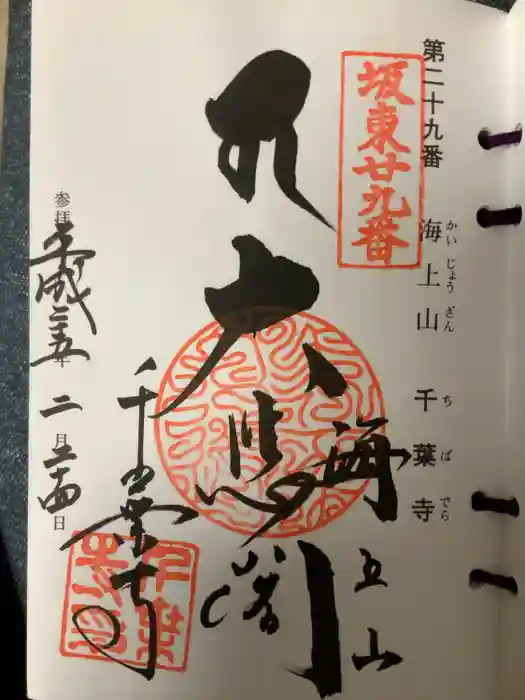 第二十九番 海上山 千葉寺
かい じょう ざん ち ば でら
坂東廿九番
大悲閣
海上山
千葉寺
参拝 平成二五年 二月二十四日